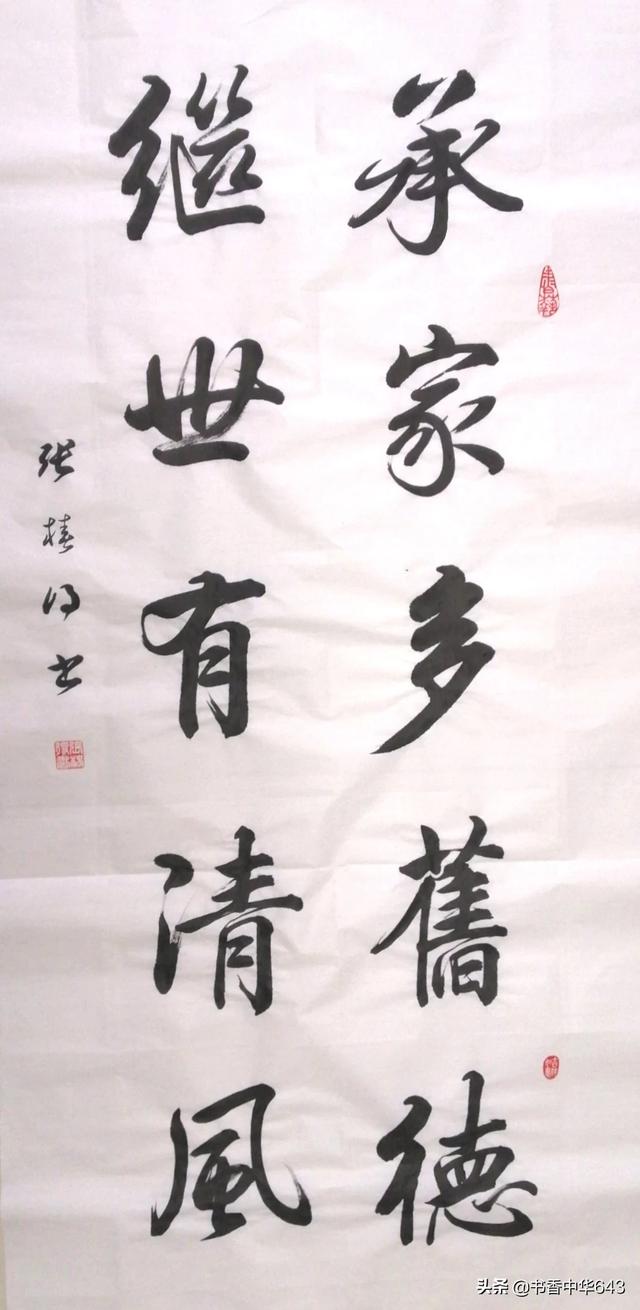 承家多舊德
继世有清風
张桂母书
头条 @书香中华643